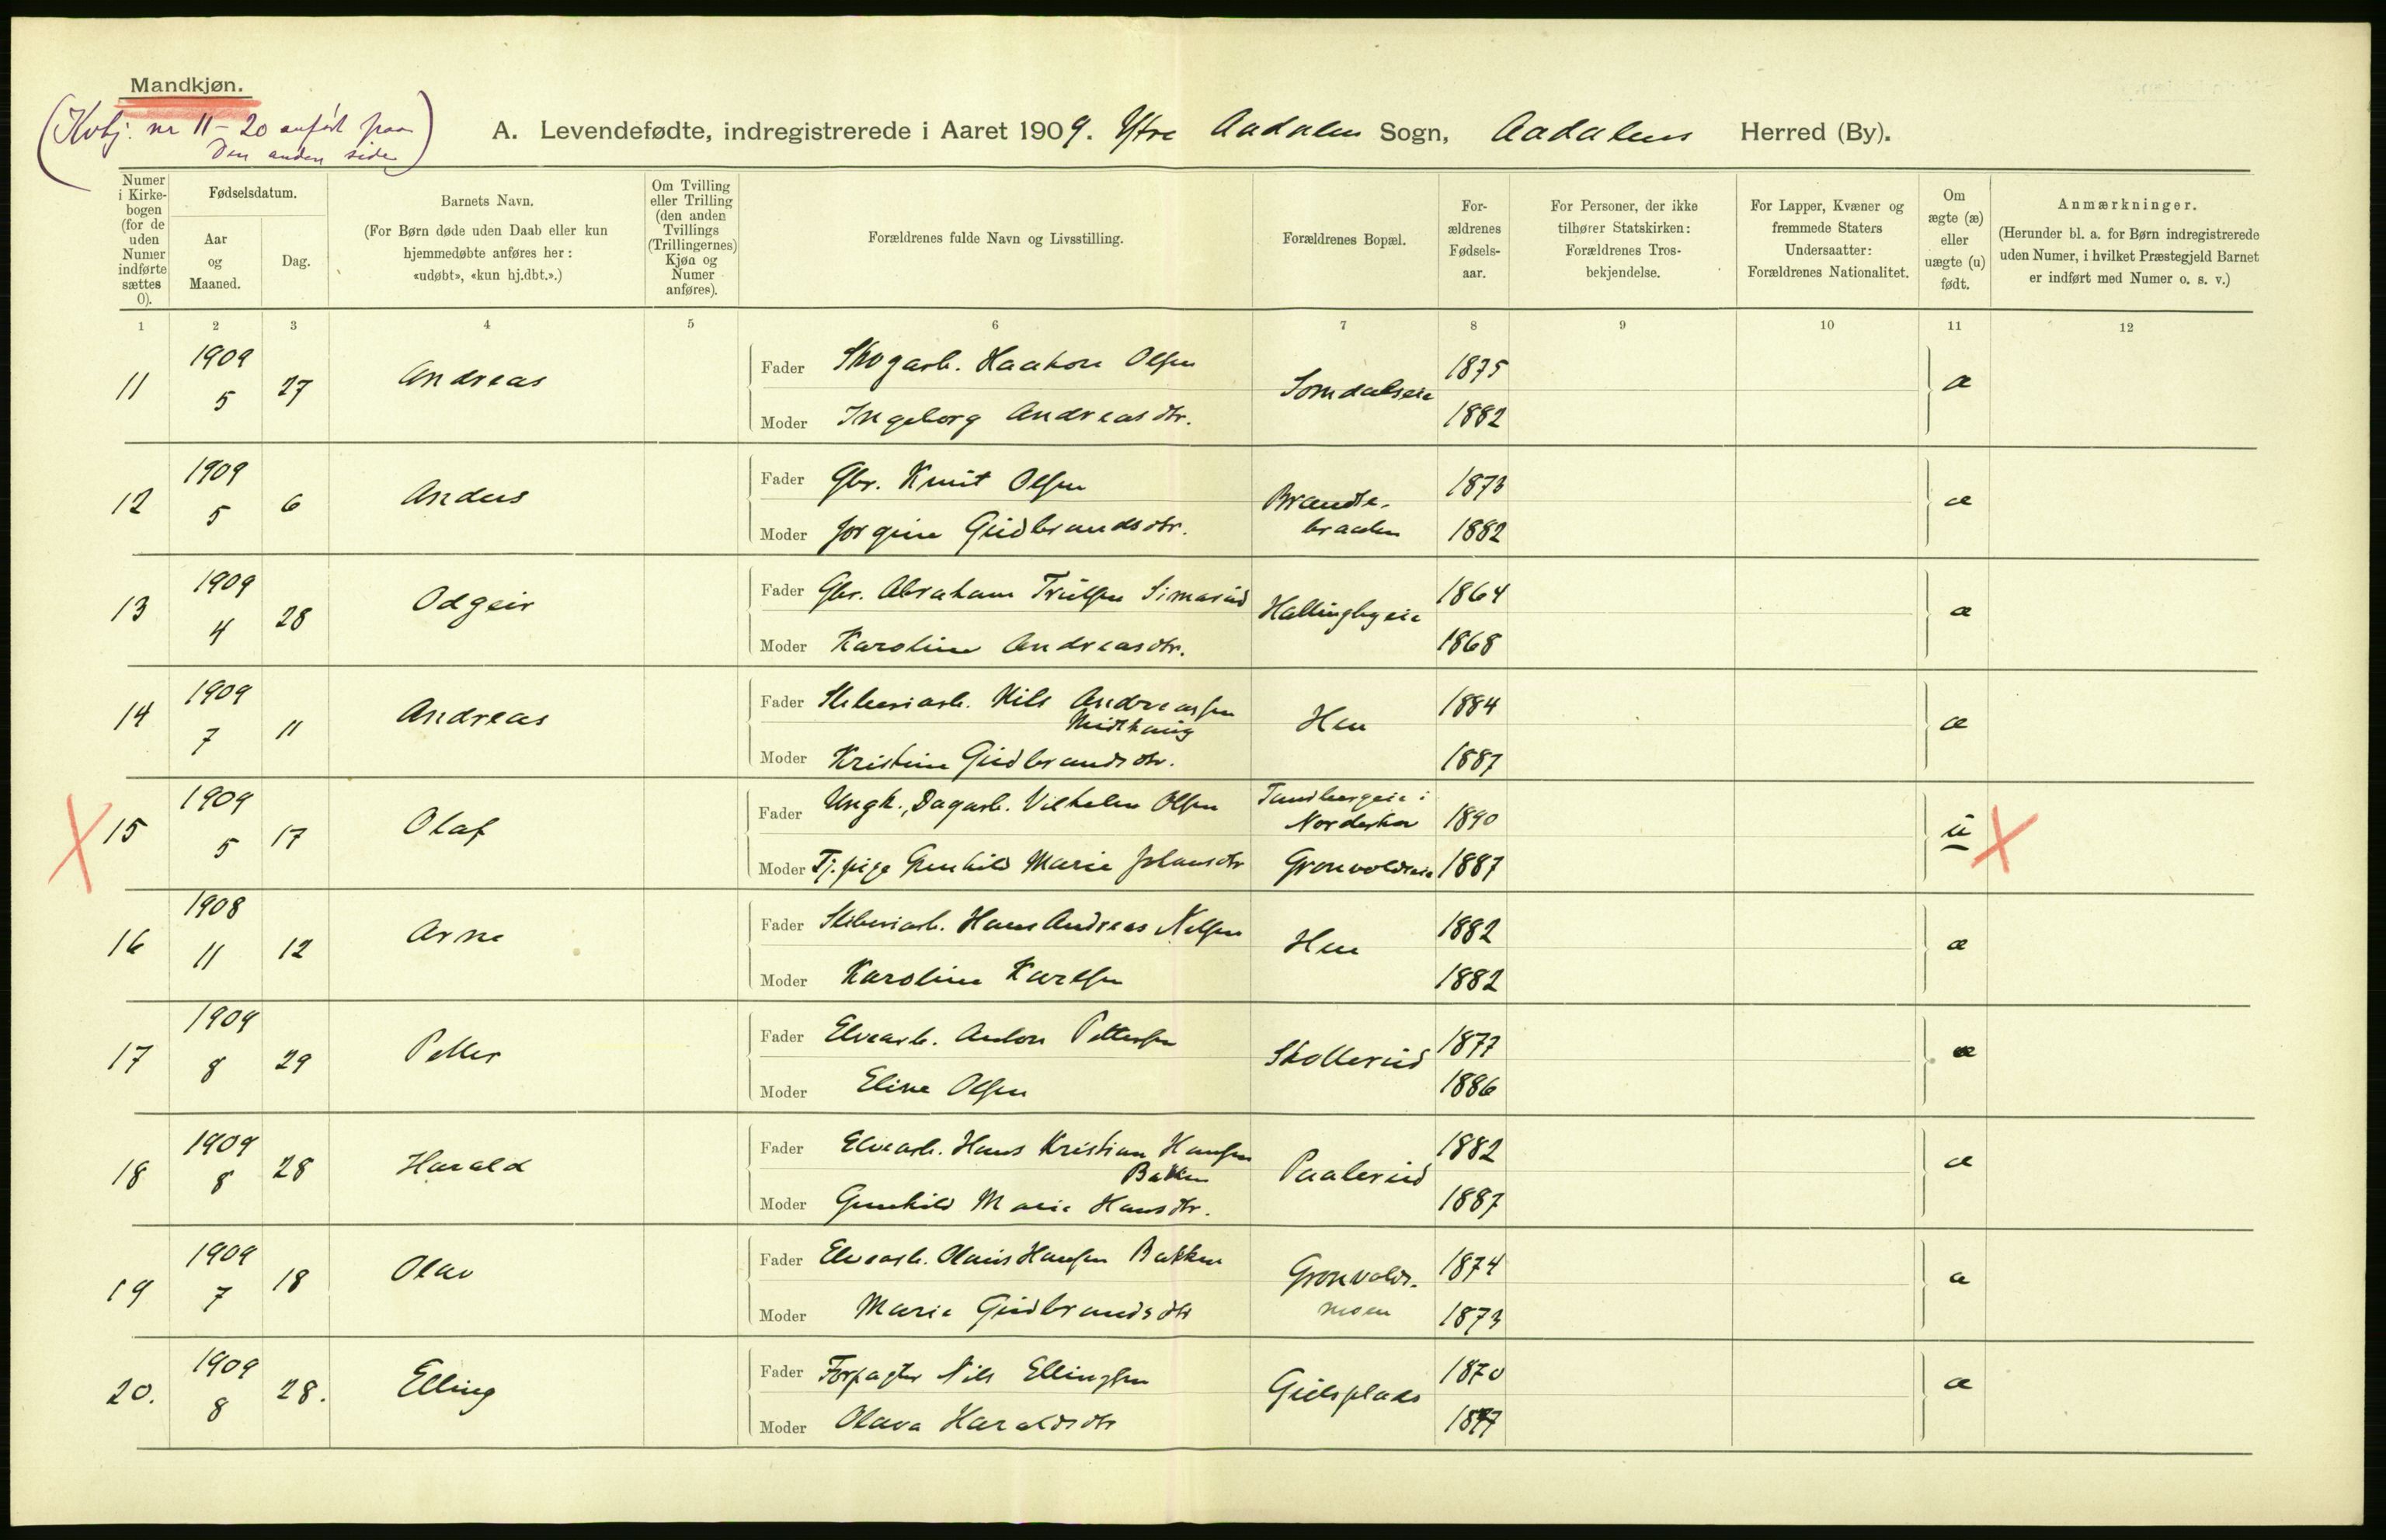 Mandkjøn.
(Kvkj. nr 11-20 anført paa
Den anden side)
A. Levendefødte, indregistrerede i Aaret 1909. Ytre Aadalen Sogn, Aadalens Herred (By).
Numer i Kirke-bogen (for de uden Numer indførte sættes 0).
Fødselsdatum.
Aar og Maaned.
Dag.
Barnets Navn.
(For Børn døde uden Daab eller kun hjemmedøbte anføres her: «udøbt», «kun hj.dbt.».)
Om Tvilling eller Trilling (den anden Tvillings (Trillingernes) Kjøn og Numer anføres).
Forældrenes fulde Navn og Livsstilling.
Forældrenes Bopæl.
For-ældrenes Fødsels-aar.
For Personer, der ikke tilhører Statskirken: Forældrenes Tros-bekjendelse.
For Lapper, Kvæner og fremmede Staters Undersaatter: Forældrenes Nationalitet.
Om ægte (æ) eller uægte (u) født.
Anmærkninger.
(Herunder bl. a. for Børn indregistrerede uden Numer, i hvilket Præstegjeld Barnet er indført med Numer o. s. v.)
1 2 3 4 5 6 7 8 9 10 11 12
11 1909 5 27 Andreas
Fader Skogarb. Haakon Olsen Somdalseie 1875 æ
Moder Ingeborg Andreasdtr. 1882
12 1909 5 6 Anders
Fader Gbr. Knut Olsen Brændte- 1873 æ
Moder Jørgine Gudbrandsdtr. braaten 1882
13 1909 4 28 Odgeir
Fader Gbr. Abraham Trulsen Simarud Hallingbyeie 1864 æ
Moder Karoline Andreasdtr. 1868
14 1909 7 11 Andreas
Fader Sliberiarb. Nils Andreassen Midthaug Hen 1884 æ
Moder Kristine Gudbrandsdtr. 1887
15 1909 5 17 Olaf
Fader Ungk., Dagarb. Vilhelm Olsen Tandbergeie i Norderhov 1890 u
Moder Tj. pige Gunhild Marie Johansdtr Grønvoldseie 1887
16 1908 11 12 Arne
Fader Sliberiarb. Hans Andreas Nilsen Hen 1882 æ
Moder Karoline Karlsen 1882
17 1909 8 29 Petter
Fader Elvearb. Anton Pettersen Skollerud 1877 æ
Moder Eline Olsen 1886
18 1909 8 28 Harald
Fader Elvearb. Hans Kristian Hansen Bakken Paalerud 1882 æ
Moder Gunhild Marie Hansdtr. 1887
19 1909 7 18 Olav
Fader Elvearb. Olaus Hansen Bakken Grønvolds- 1874 æ
Moder Marie Gudbrandsdtr moen 1873
20. 1909 8 28. Elling
Fader Forpagter Nils Ellingsen Gulsplads 1870 æ
Moder Olava Haraldsdtr 1877